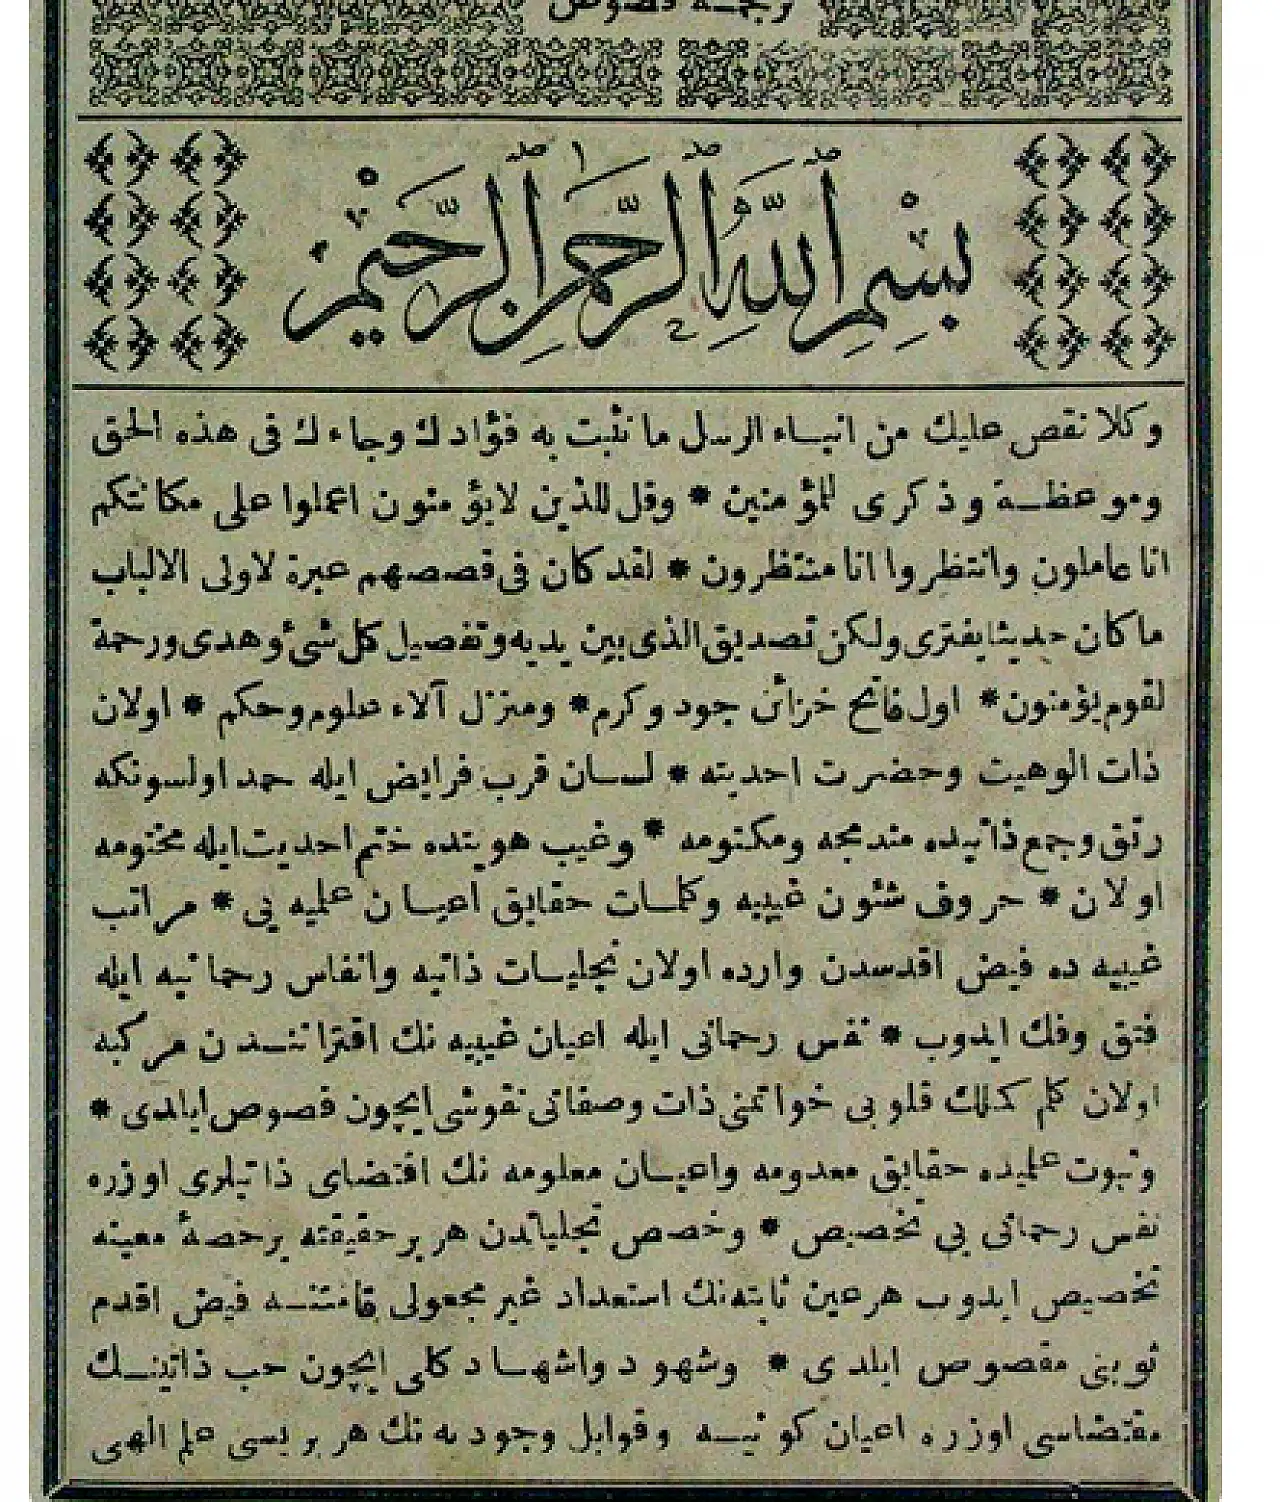 ترجمـه فصوص
بسم الله الرحمن الرحيم
وكلا نقص عليك من انبـاء الرسل ما نثبت به فؤادك وجاءك فى هذه الحق
وموعظـة وذكرى للمؤمنين * وقل للذين لايؤمنون اعملوا على مكانتكم
انا عاملون وانتظروا انا منتظرون * لقد كان فى قصصهم عبرة لاولى الالباب
ما كان حديثا يفترى ولكن تصديق الذى بين يديه وتفصيل كل شىء وهدى ورحمة
لقوم يؤمنون * اول فاتح خزائن جود وكرم * ومنزل آلاء علوم وحكم * اولان
ذات الوهيت وحضرت احديته * لسـان قرب فرايض ايله حمد اولسونكه
رتق وجمع ذاتيده مندمجه ومكتومه * وغيب هويتده ختم احديت ايله مختومه
اولان * حروف شئون غيبيه وكلمـات حقايق اعيـان علميه يى * مراتب
غيبيه ده فيض اقدسدن وارده اولان تجليـات ذاتيه وانفاس رحمانيه ايله
فتق وفك ايدوب * نفس رحمانى ايله اعيان غيبيه نك اقترانـندن مركبه
اولان كلم كملك قلوبى خواتمنى ذات وصفاتى نقوشى ايچون فصوص ايلدى *
وثبوت علميده حقايق معدومه واعيـان معلومه نك اقتضاى ذاتيلرى اوزره
نفس رحمانى يى تخصيص * وخصص تجلياتدن هر بر حقيقته بر حصۀ معينه
تخصيص ايدوب هر عين ثابته نك استعداد غير مجعولى قامتنـه فيض اقدم
ثوبنى مقصوص ايلدى * وشهود واشهـاد كلى ايچون حب ذاتينـك
مقتضاسى اوزره اعيان كونيـه وقوابل وجوديه نك هر بريسى علم الهى